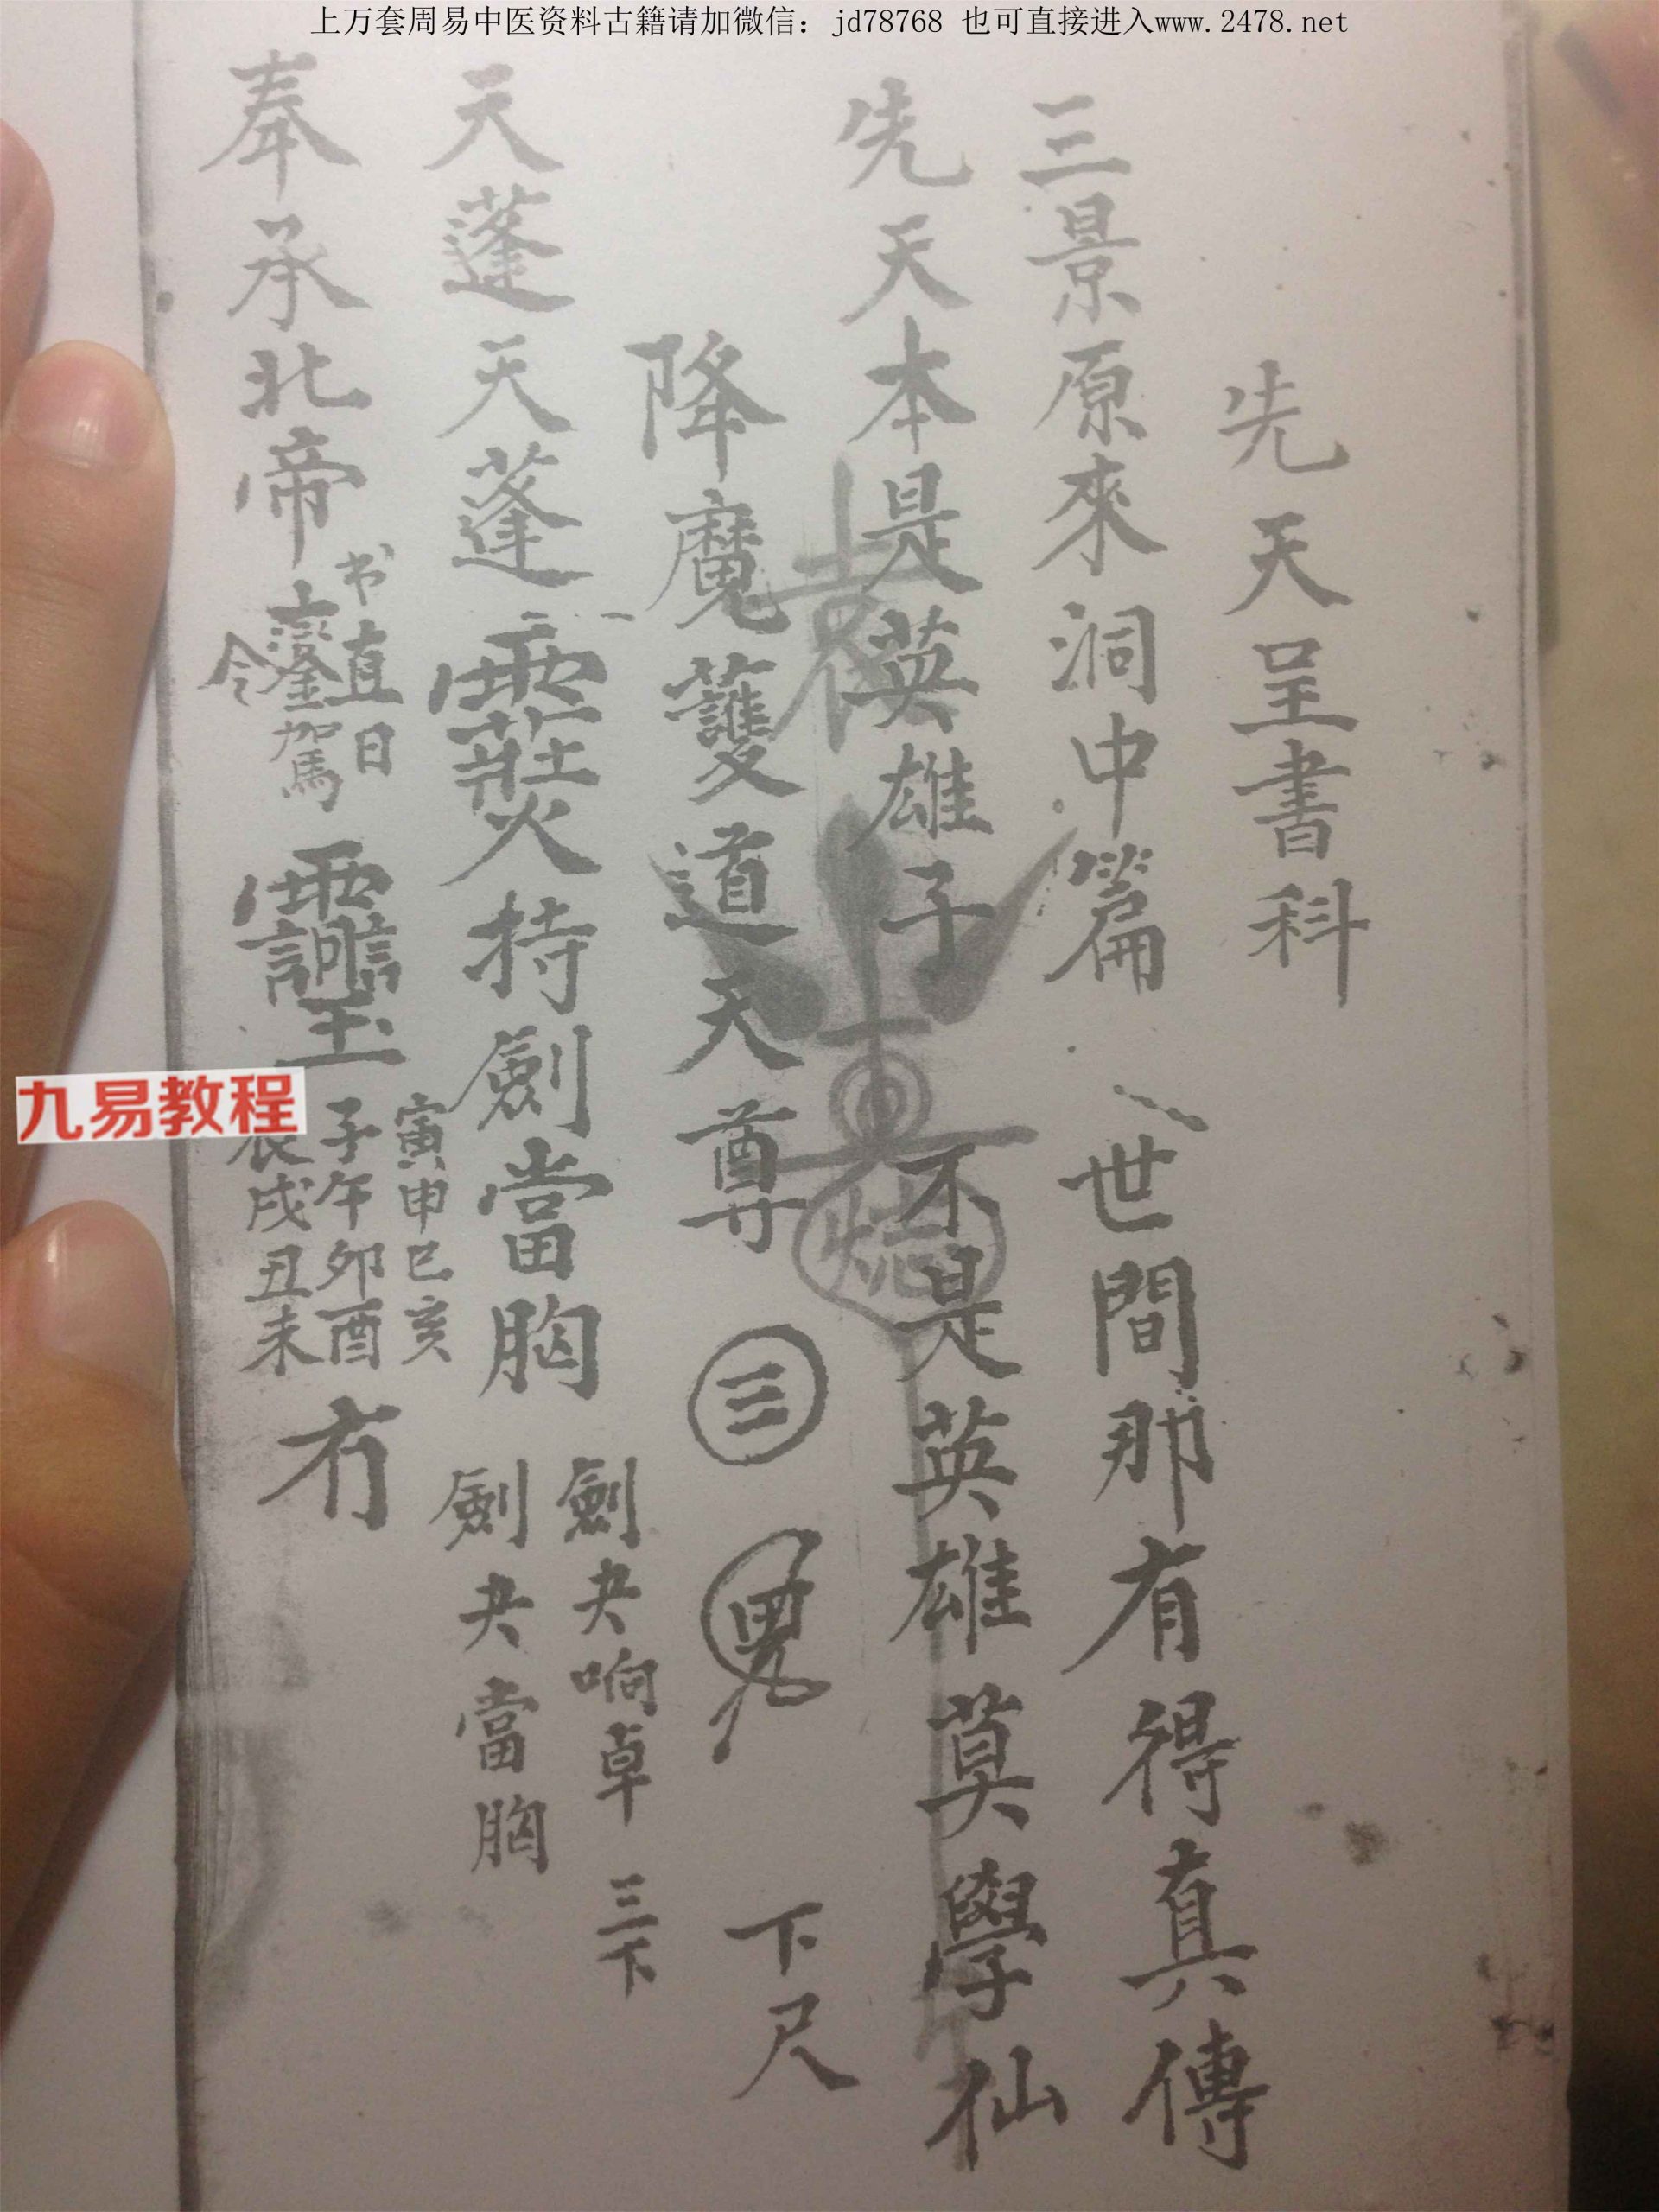 上万套周易中医资料古籍请加微信：jd78768 也可直接进入www.2478.net
先天呈書科
三景原來洞中篇 世間那有得真傳
先天本是英雄子 不是英雄莫學仙
降魔護道天尊 三 下尺
天蓬天蓬 持劍當胸
劍夬响卓三下
劍夬當胸
奉承北帝
书直日
駕
令
寅申巳亥
子午卯酉
辰戌丑未
九易教程